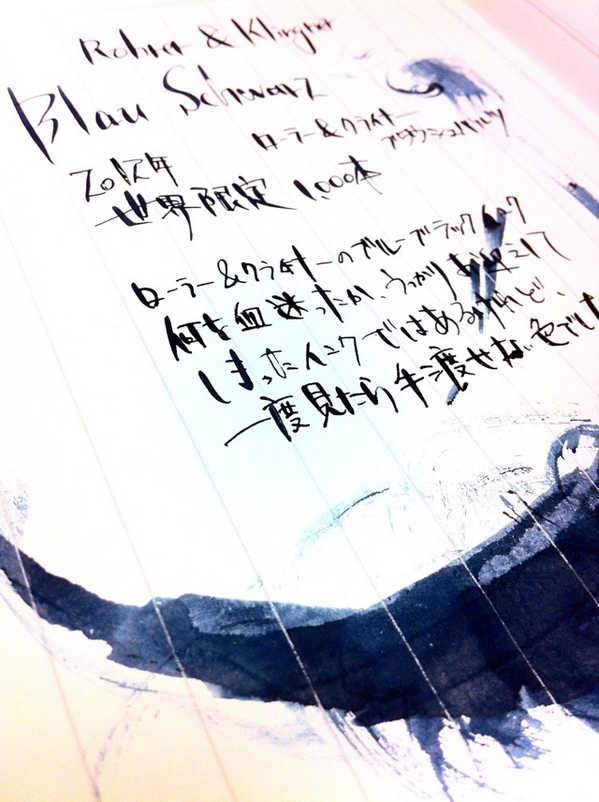 Rohrer & Klingner
Blau Schwarz
ローラー&クライナー
ブラウシュバルツ
2012年
世界限定 1,000本
ローラー&クライナーのブルーブラックインク
何を血迷ったか、うっかりお迎えして
しまったインクではあるけれど、
一度見たら手渡せない色でした